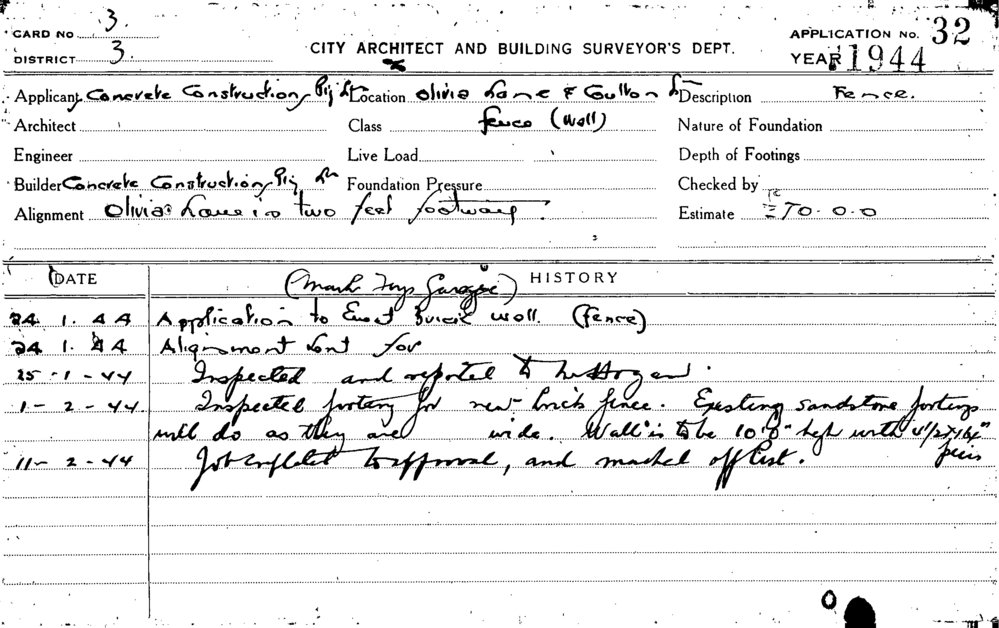 CARD No 3.
DISTRICT 3.
CITY ARCHITECT AND BUILDING SURVEYOR'S DEPT.
APPLICATION No. 32
YEAR 1944
Applicant Concrete Constructions Pty Ltd Location Olivia Lane & Goulburn Description Fence.
Architect Class fence (wall) Nature of Foundation
Engineer Live Load Depth of Footings
Builder Concrete Constructions Pty Foundation Pressure Checked by
Alignment Olivia Lane is two feet footways. Estimate £70.0.0
DATE HISTORY
(Mark Foys Garage)
24 1. 44 Application to Erect Brick wall. (Fence)
24 1. 44 Alignment sent for
25 - 1 - 44 Inspected and reported to
1 - 2 - 44. Inspected footing for new brick fence. Existing sandstone footings
will do as they are wide. Wall is to be 10'0" high with
piers
11 - 2 - 44 Job complete to approval, and marked off list.